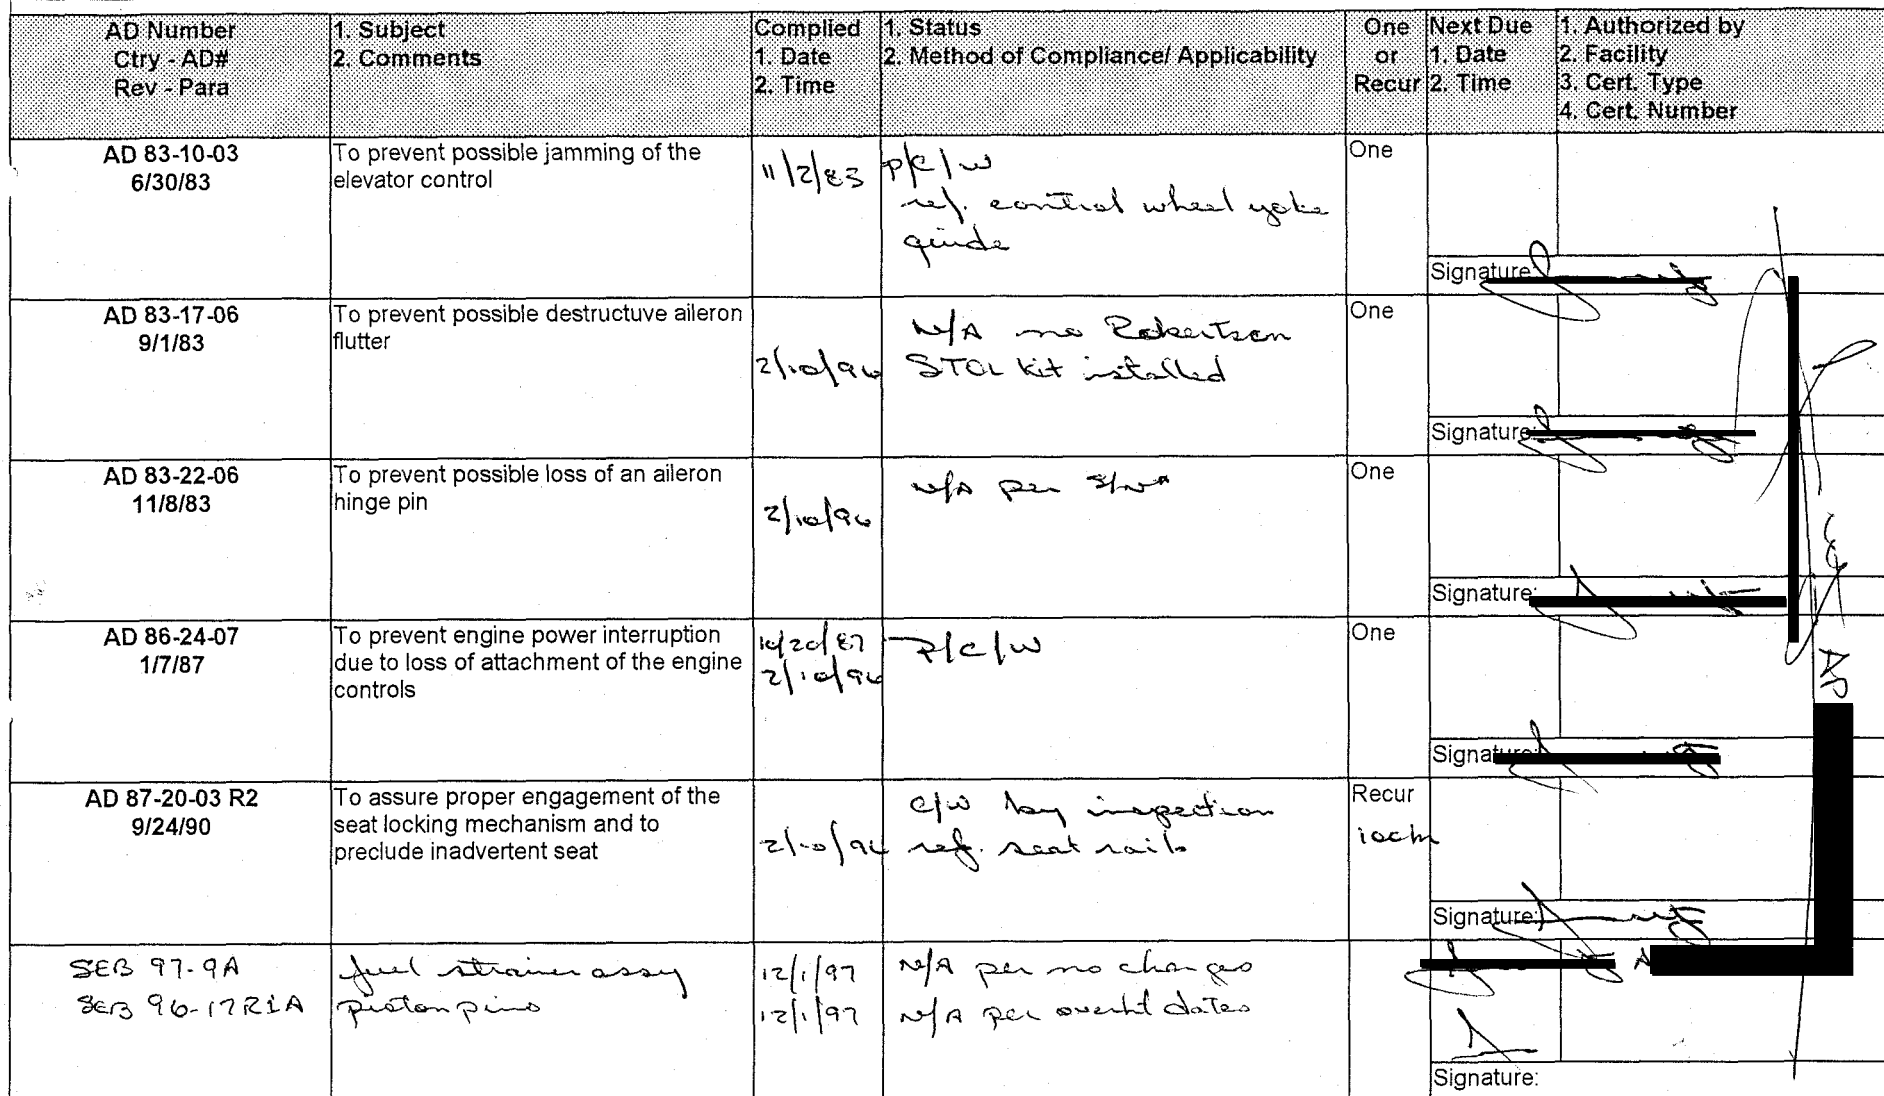 AD Number
Ctry - AD#
Rev - Para
1. Subject
2. Comments
Complied
1. Date
2. Time
1. Status
2. Method of Compliance/ Applicability
One
or
Recur
Next Due
1. Date
2. Time
1. Authorized by
2. Facility
3. Cert. Type
4. Cert. Number
AD 83-10-03
6/30/83
To prevent possible jamming of the
elevator control
11/2/83
P/C/W
ref. control wheel yoke
guide
One
Signature:
AD 83-17-06
9/1/83
To prevent possible destructuve aileron
flutter
2/10/96
N/A no Robertson
STOL kit installed
One
Signature:
AD 83-22-06
11/8/83
To prevent possible loss of an aileron
hinge pin
2/10/96
N/A per
One
Signature:
AD 86-24-07
1/7/87
To prevent engine power interruption
due to loss of attachment of the engine
controls
10/20/87
2/10/96
P/C/W
One
Signature:
AD 87-20-03 R2
9/24/90
To assure proper engagement of the
seat locking mechanism and to
preclude inadvertent seat
2/10/96
C/W by inspection
ref. seat rails
Recur
Signature:
SEB 97-9A
fuel strainer assy
12/1/97
N/A per no changes
SEB 96-17R1A
piston pins
12/1/97
N/A per overhl dates
Signature: